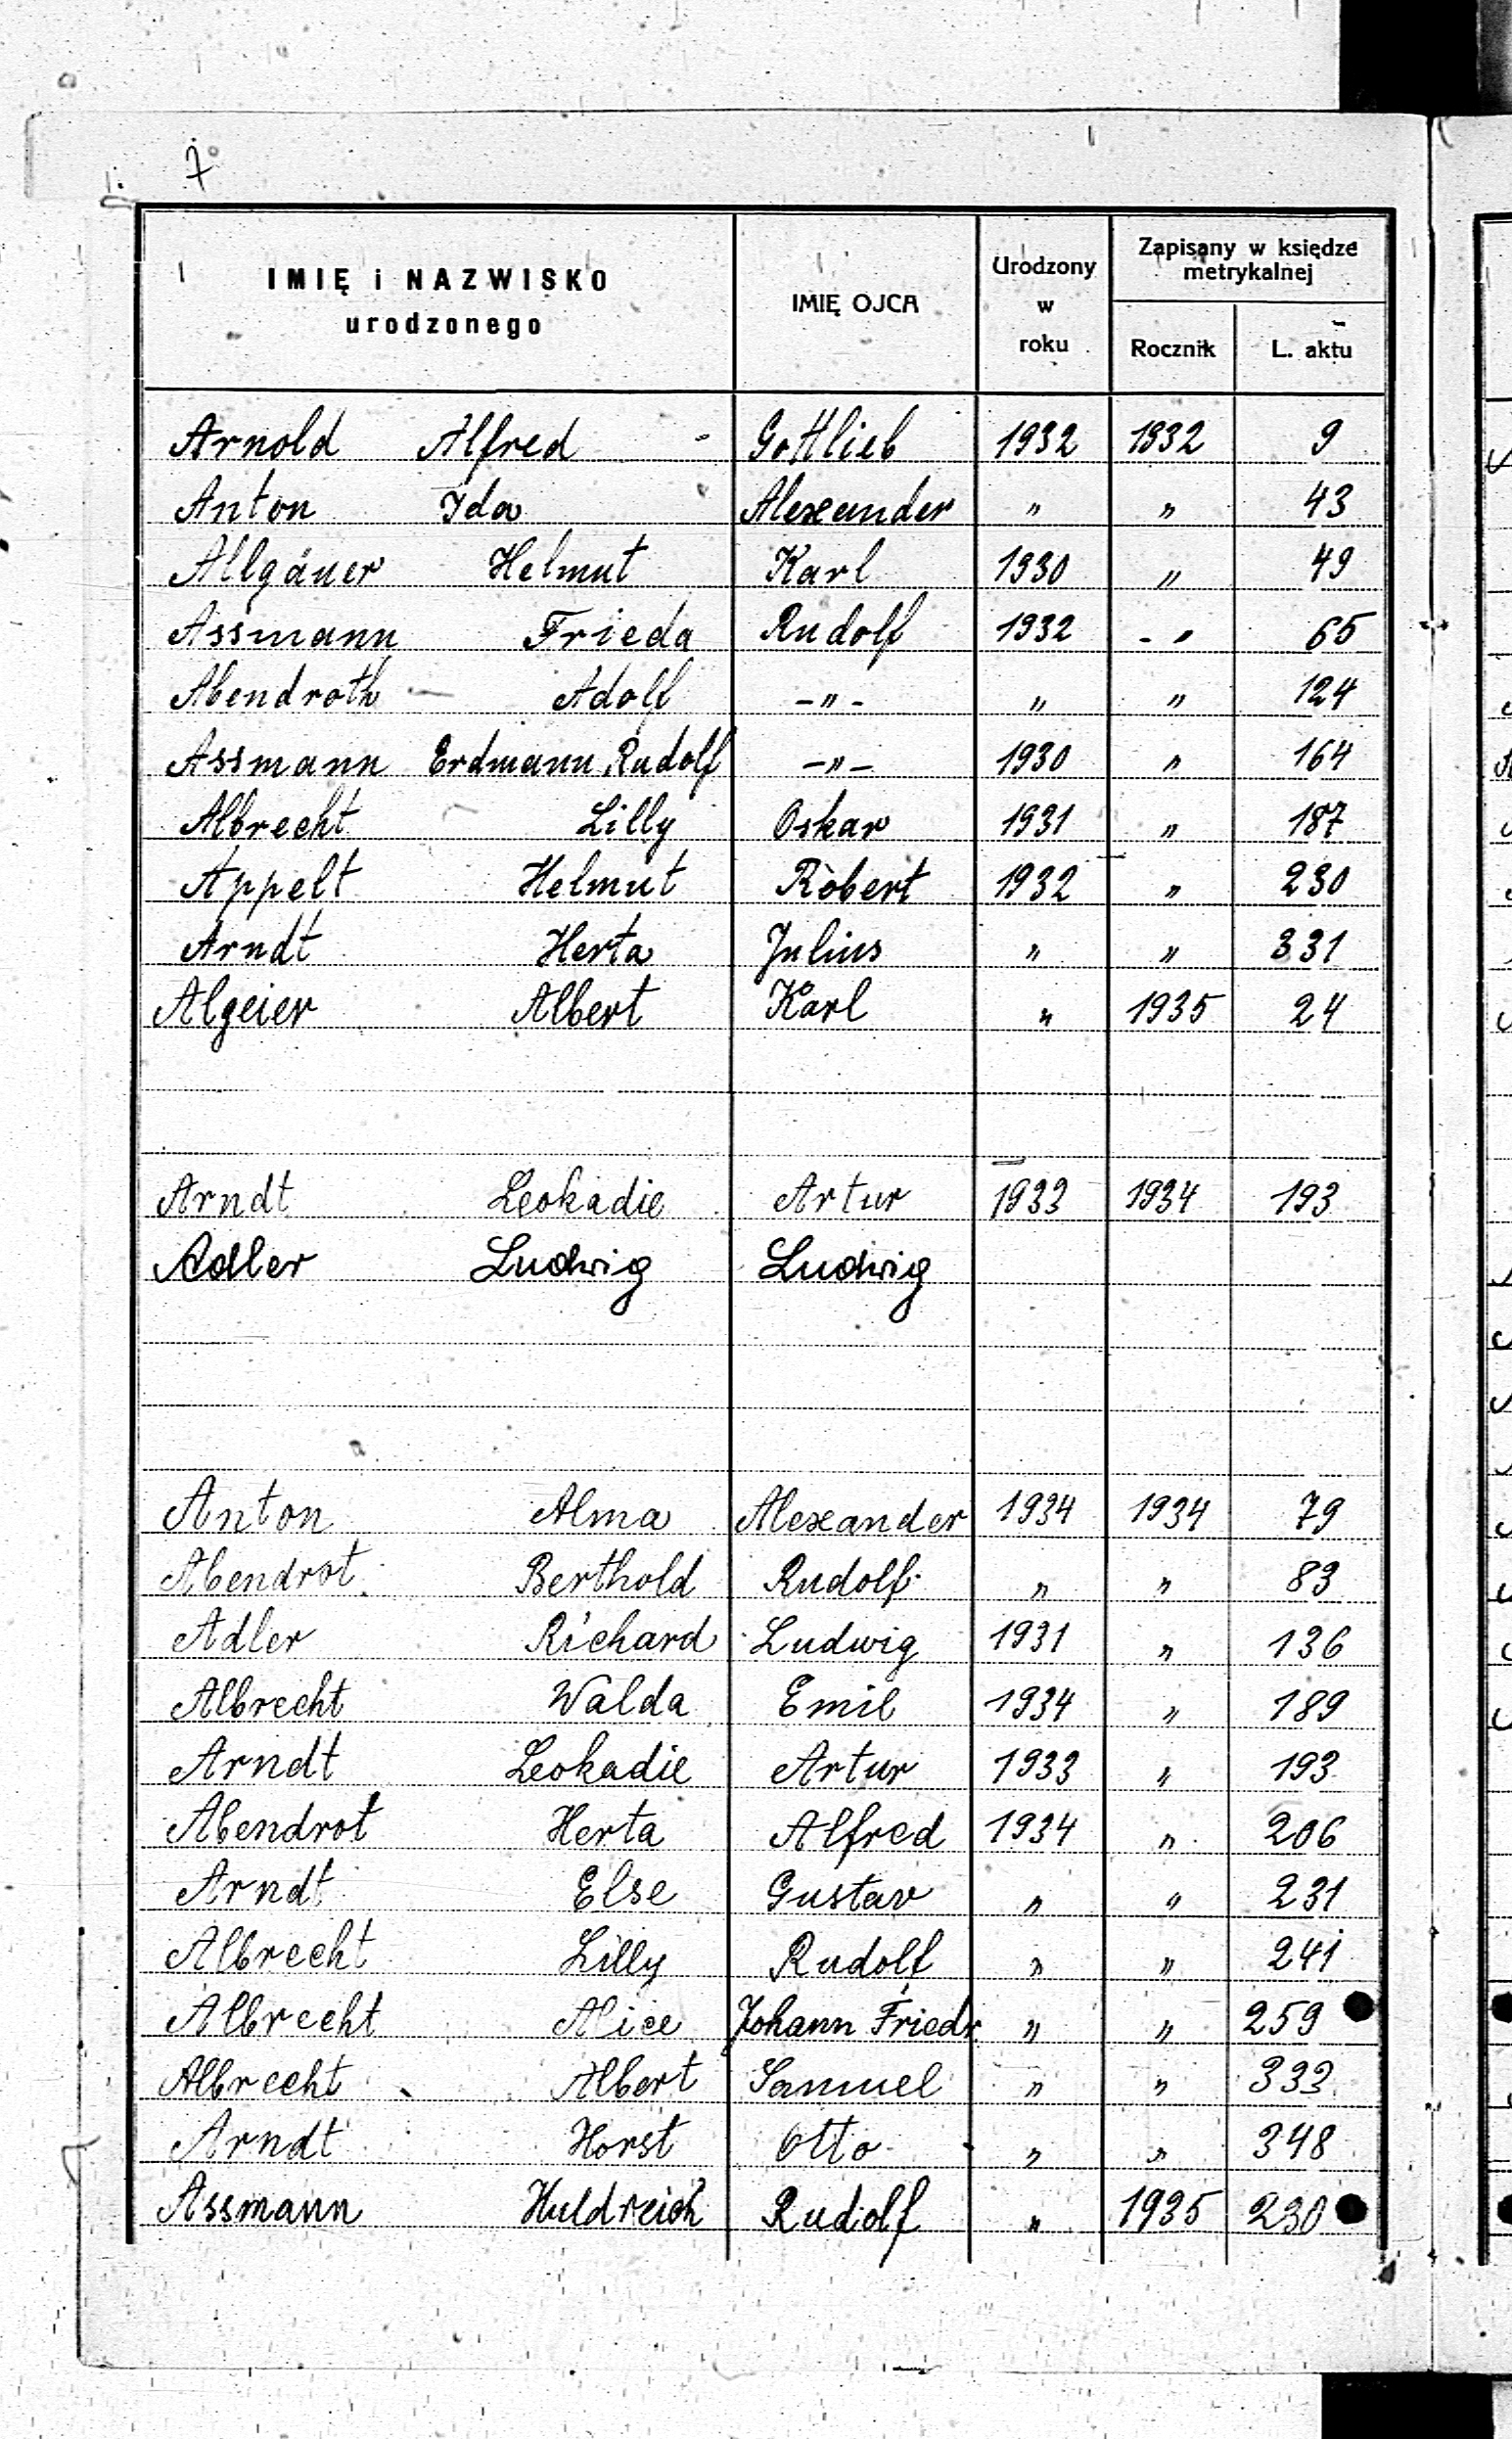 7
IMIĘ i NAZWISKO
urodzonego
IMIĘ OJCA
Urodzony
w
roku
Zapisany w księdze
metrykalnej
Rocznik
L. aktu
Arnold Alfred Gottlieb 1932 1932 9
Anton Ida Alexander " " 43
Allgäuer Helmut Karl 1930 " 49
Assmann Frieda Rudolf 1932 - " 65
Abendroth Adolf -"- " " 124
Assmann Erdmann, Rudolf -"- 1930 " 164
Albrecht Lilly Oskar 1931 " 187
Appelt Helmut Robert 1932 " 230
Arndt Herta Julius " " 331
Algeier Albert Karl " 1935 24
Arndt Leokadie Artur 1933 1934 193
Adler Ludwig Ludwig
Anton Alma Alexander 1934 1934 79
Abendrot Berthold Rudolf " " 83
Adler Richard Ludwig 1931 " 136
Albrecht Walda Emil 1934 " 189
Arndt Leokadie Artur 1933 " 193
Abendrot Herta Alfred 1934 " 206
Arndt Else Gustav " " 231
Albrecht Lilly Rudolf " " 241
Albrecht Alice Johann Friedr. " " 259
Albrecht Albert Samuel " " 333
Arndt Horst Otto " " 348
Assmann Huldreich Rudolf " 1935 230